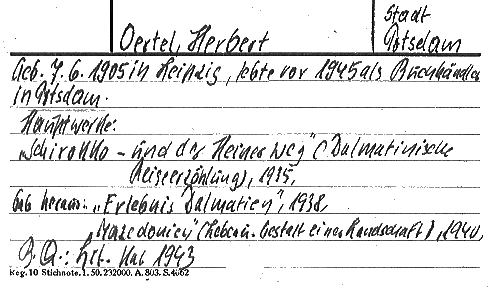 Stadt
Oertel, Herbert Potsdam
Geb. 7. 6. 1905 in Leipzig, lebte vor 1945 als Buchhändler
in Potsdam.
Hauptwerke:
„Schirokko – und der Heiner weg" (Dalmatinische
Reiseerzählung), 1935,
Gab heraus: „Erlebnis Dalmatien", 1938,
„Mazedonien" (Leben u. Gestalt einer Landschaft), 1940,
B. Q.: Lit. Kal 1943
Reg. 10 Stichnote. 1. 50. 232000. A. 803. S.